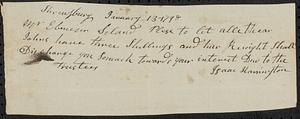 Shrewsbury January 13
Mr Ebenezer Leland Plese to let
Johns have three Shillings and har Receight Shall
Discharge you Somuch towards your interest Due to the
trustees
Isaac Harrington